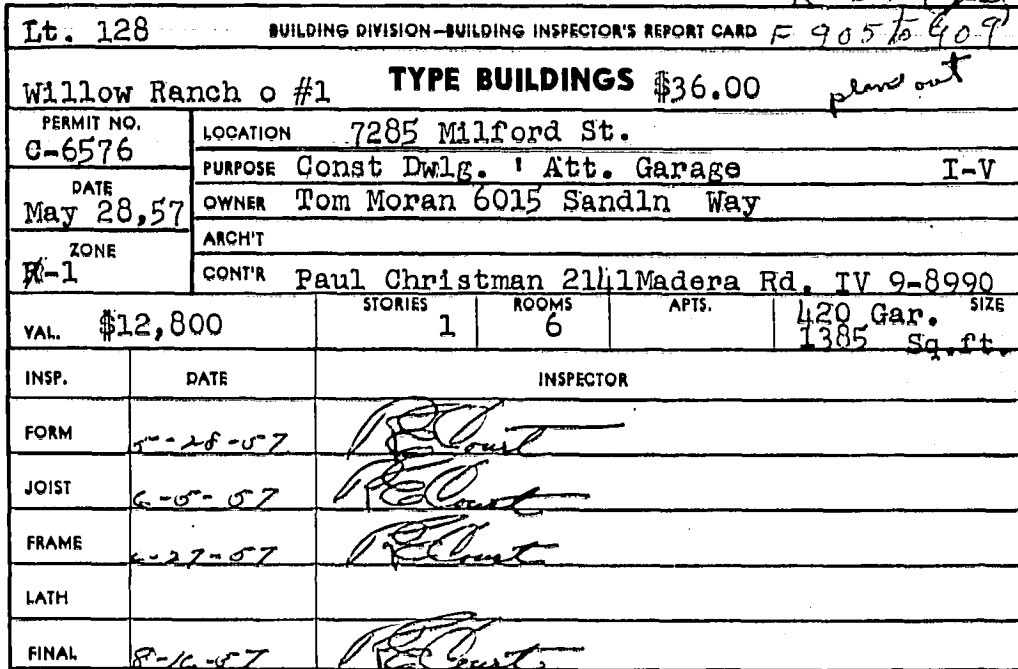 Lt. 128 BUILDING DIVISION—BUILDING INSPECTOR'S REPORT CARD F 905 to 909
Willow Ranch o #1 TYPE BUILDINGS $36.00 plans out
PERMIT NO. C-6576
LOCATION 7285 Milford St.
PURPOSE Const Dwlg. ' Att. Garage I-V
DATE May 28,57
OWNER Tom Moran 6015 Sandln Way
ARCH'T
ZONE R-1
CONT'R Paul Christman 2141Madera Rd. IV 9-8990
VAL. $12,800 STORIES 1 ROOMS 6 APTS. 420 Gar. SIZE
1385 Sq.ft.
INSP. DATE INSPECTOR
FORM 5-28-57 RECourt
JOIST 6-5-57 RECourt
FRAME 6-27-57 RECourt
LATH
FINAL 8-16-57 RECourt